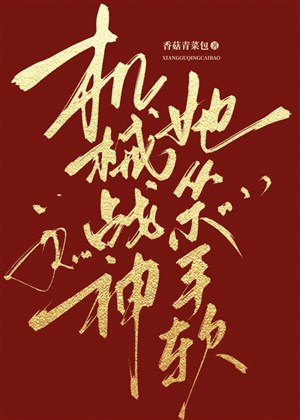 香菇青菜包 著
XIANGGUQINGCAIBAO
机械战神
她从不手软